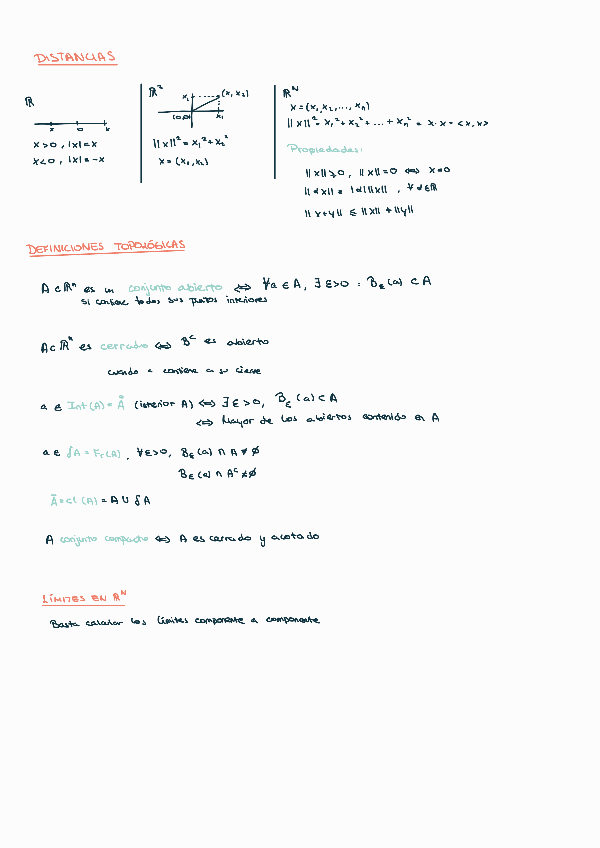 DISTANCIAS
ℝ
x 0 x
x>0, |x|=x
x<0, |x|=-x
ℝ²
x₂ (x₁,x₂)
(0,0) x₁
||x||² = x₁² + x₂²
x = (x₁,x₂)
ℝᴺ
x = (x₁,x₂,...,xₙ)
||x||² = x₁² + x₂² + ... + xₙ² = x·x = <x,x>
Propiedades:
||x|| ≥ 0, ||x|| = 0 ⟺ x=0
||αx|| = |α| ||x||, ∀α∈ℝ
||x+y|| ≤ ||x|| + ||y||
DEFINICIONES TOPOLÓGICAS
A⊂ℝⁿ es un conjunto abierto ⟺ ∀a∈A, ∃ε>0 : Bε(a) ⊂ A
si contiene todos sus puntos interiores
A⊂ℝⁿ es cerrado ⟺ Bᶜ es abierto
cuando a contiene a su cierre
a ∈ Int(A) = Å (interior A) ⟺ ∃ε>0, Bε(a) ⊂ A
⟺ Mayor de los abiertos contenido en A
a ∈ ∂A = Fr(A), ∀ε>0, Bε(a) ∩ A ≠ ∅
Bε(a) ∩ Aᶜ ≠ ∅
Ā = cl(A) = A ∪ ∂A
A conjunto compacto ⟺ A es cerrado y acotado
LÍMITES EN ℝᴺ
Basta calcular los límites componente a componente